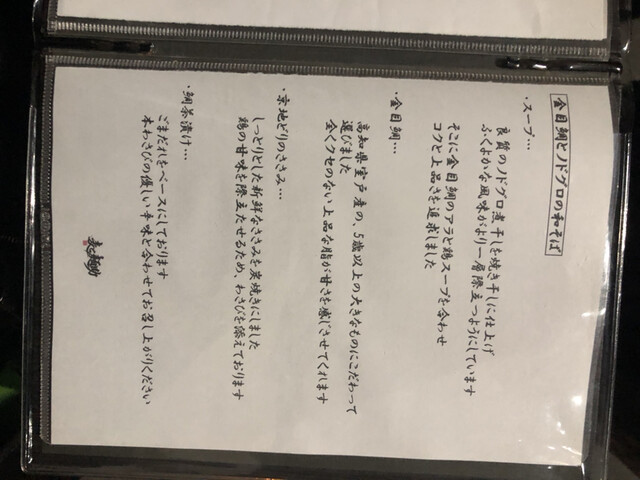 金目鯛とノドグロの和そば
・スープ…
良質のノドグロ煮干しを焼き干しに仕上げ
ふくよかな風味がより一層際立つようにしています
そこに金目鯛のアラと鶏スープを合わせ
コクと上品さを追求しました
・金目鯛…
高知県室戸産の、5歳以上の大きなものにこだわって
選びました
全くクセのない上品な脂が甘さを感じさせてくれます
・京地どりのささみ…
しっとりとした新鮮なささみを炭焼きにしました
鶏の甘味を際立たせるため、わさびを添えております
・鯛茶漬け…
ごまだれをベースにしております
本わさびの優しい辛味と合わせてお召し上がりください